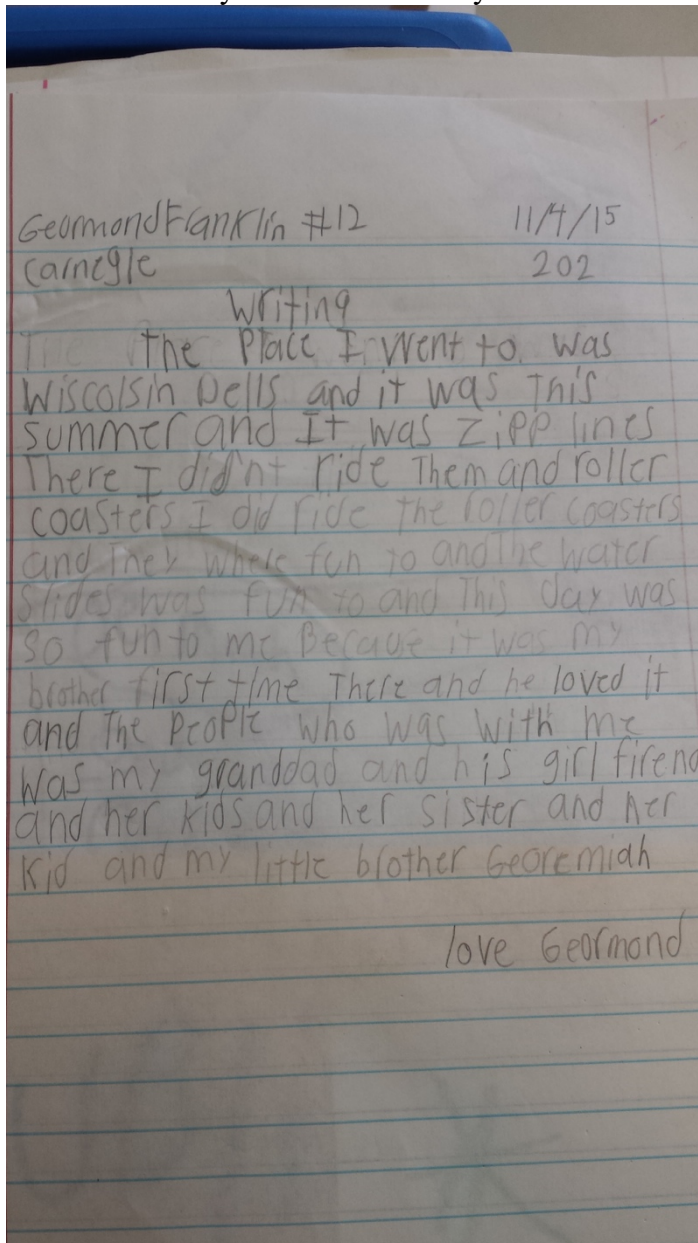 Geormond Franklin #12 11/4/15
Carnegie 202
Writing
The Place I went to. was
Wiscolsin Dells and it was This
summer and It was Zipp lines
There I did'nt ride Them and roller
coasters I did ride the roller coasters
and They where fun to and The water
slides was fun to and This day was
so fun to me Becaue it was my
brother first time There and he loved it
and The People who was with me
was my granddad and his girl firend
and her kids and her sister and her
kid and my little brother Georemiah
love Geormond